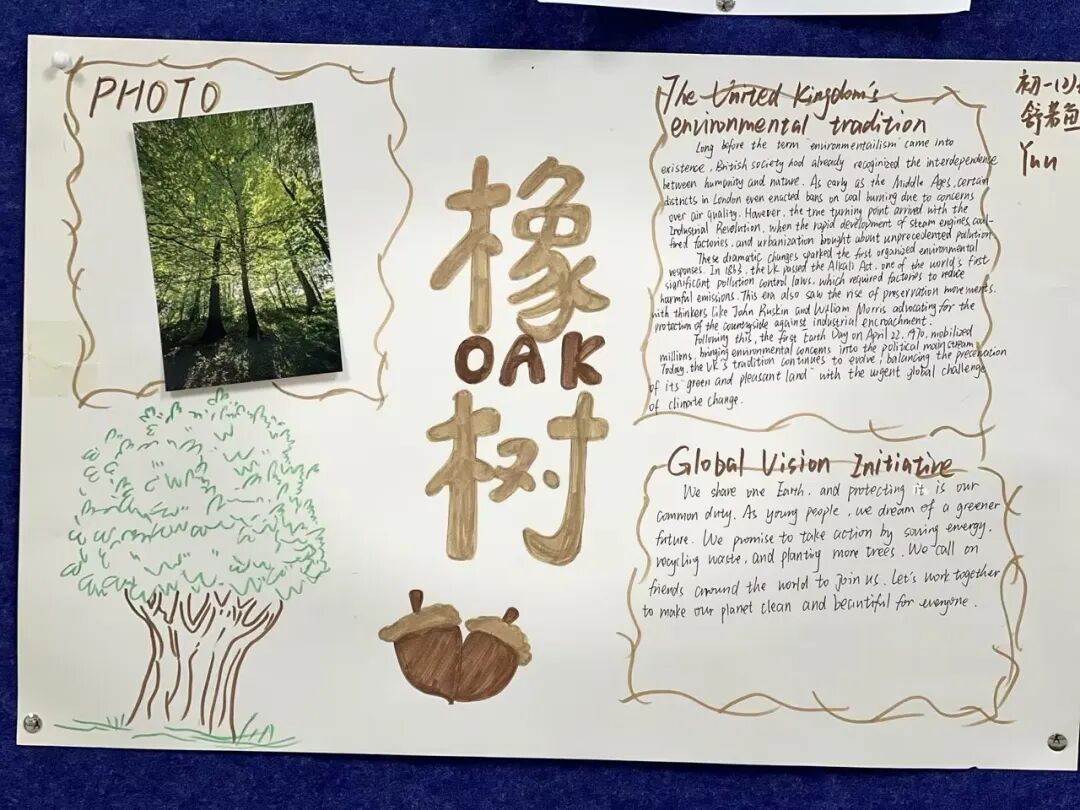 PHOTO
橡
OAK
树
The United Kingdom's
environmental tradition
Long before the term "environmentailism" came into
existence, British society had already recoginized the interdependense
between humanity and nature. As early as the Middle Ages, certain
districts in London even enacted bans on coal burning due to concerns
over air quality. However, the true turning point arrived with the
Industrial Revolution, when the rapid development of steam engines, coal-
fired factories, and urbanization brought about unprecedented pollution
These dramatic changes sparked the first organized environmental
responses. In 1863, the UK passed the Alkali Act, one of the world's first
significant pollution control laws, which required factories to reduce
harmful emissions. This era also saw the rise of preservation movements,
with thinkers like John Ruskin and William Morris advocating for the
protection of the countryside against industrial encroachment.
Following this, the first Earth Day on April 22, 1970, mobilized
millions, bringing environmental concerns into the political mainstream
Today, the UK's tradition continues to evolve, balancing the
of its "green and pleasant land" with the urgent global challenge
of climate change.
Global Vision Initiative
We share one Earth, and protecting it is our
common duty. As young people, we dream of a greener
future. We promise to take action by saving energy,
recycling waste, and planting more trees. We call on
friends around the world to join us. Let's work together
to make our planet clean and beautiful for everyone.
初一(2)
舒若鱼